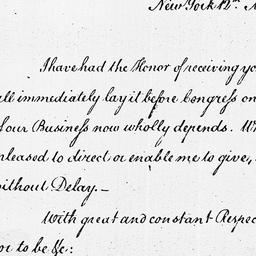 New York 12th.
I have had the Honor of receiving yo
all immediately lay it before Congress on
four Business now wholly depends. W
pleased to direct or enable me to give,
without Delay. _
With great and constant Respec
or to be &c: